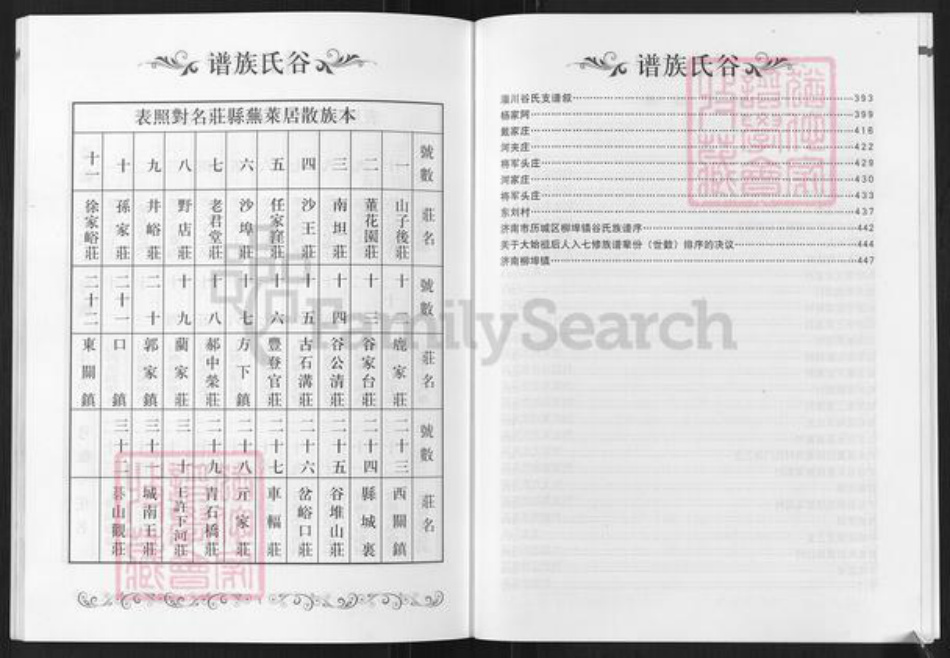 谷氏族谱
本族散居萊蕪縣莊名對照表
號數 莊名 號數 莊名 號數 莊名
一 山子後莊 十二 鹿家莊 二十三 西關鎮
二 董花園莊 十三 谷家台莊 二十四 縣城裏
三 南坦莊 十四 谷公清莊 二十五 谷堆山莊
四 沙王莊 十五 古石溝莊 二十六 岔峪口莊
五 任家窪莊 十六 豐登官莊 二十七 車輻莊
六 沙埠莊 十七 方下鎮 二十八 亓家莊
七 老君堂莊 十八 郝中榮莊 二十九 青石橋莊
八 野店莊 十九 藺家莊 三十 王許下河莊
九 井峪莊 二十 郭家鎮 三十一 城南王莊
十 孫家莊 二十一 口鎮 三十二 碁山觀莊
十一 徐家峪莊 二十二 東關鎮
谷氏族谱
淄川谷氏支谱叙 393
杨家阿 399
戴家庄 416
河夹庄 422
将军头庄 429
河家庄 430
将军头庄 433
东刘村 437
济南市历城区柳埠镇谷氏族谱序 442
关于大始祖后人入七修族谱辈份（世数）排序的决议 444
济南柳埠镇 447
FamilySearch